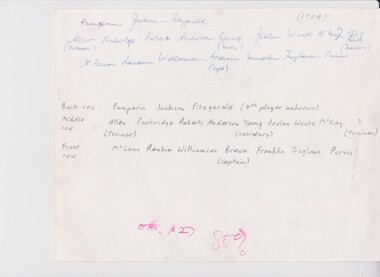 Pamperin Jackson Fitzgerald (1904)
Allen Partridge Roberts Anderson Young Jordan Weekes McKay
(trainer) (secy) (trainer)
McCann Rankin Williamson Brown Franklin Treglown Purvis
(capt)
Back row Pamperin Jackson Fitzgerald (4th player unknown)
Middle row Allen Partridge Roberts Anderson Young McKay ?
(trainer) (secretary) (trainer)
Front row McCann Rankin Williamson Brown Franklin Purvis
(captain)
85%